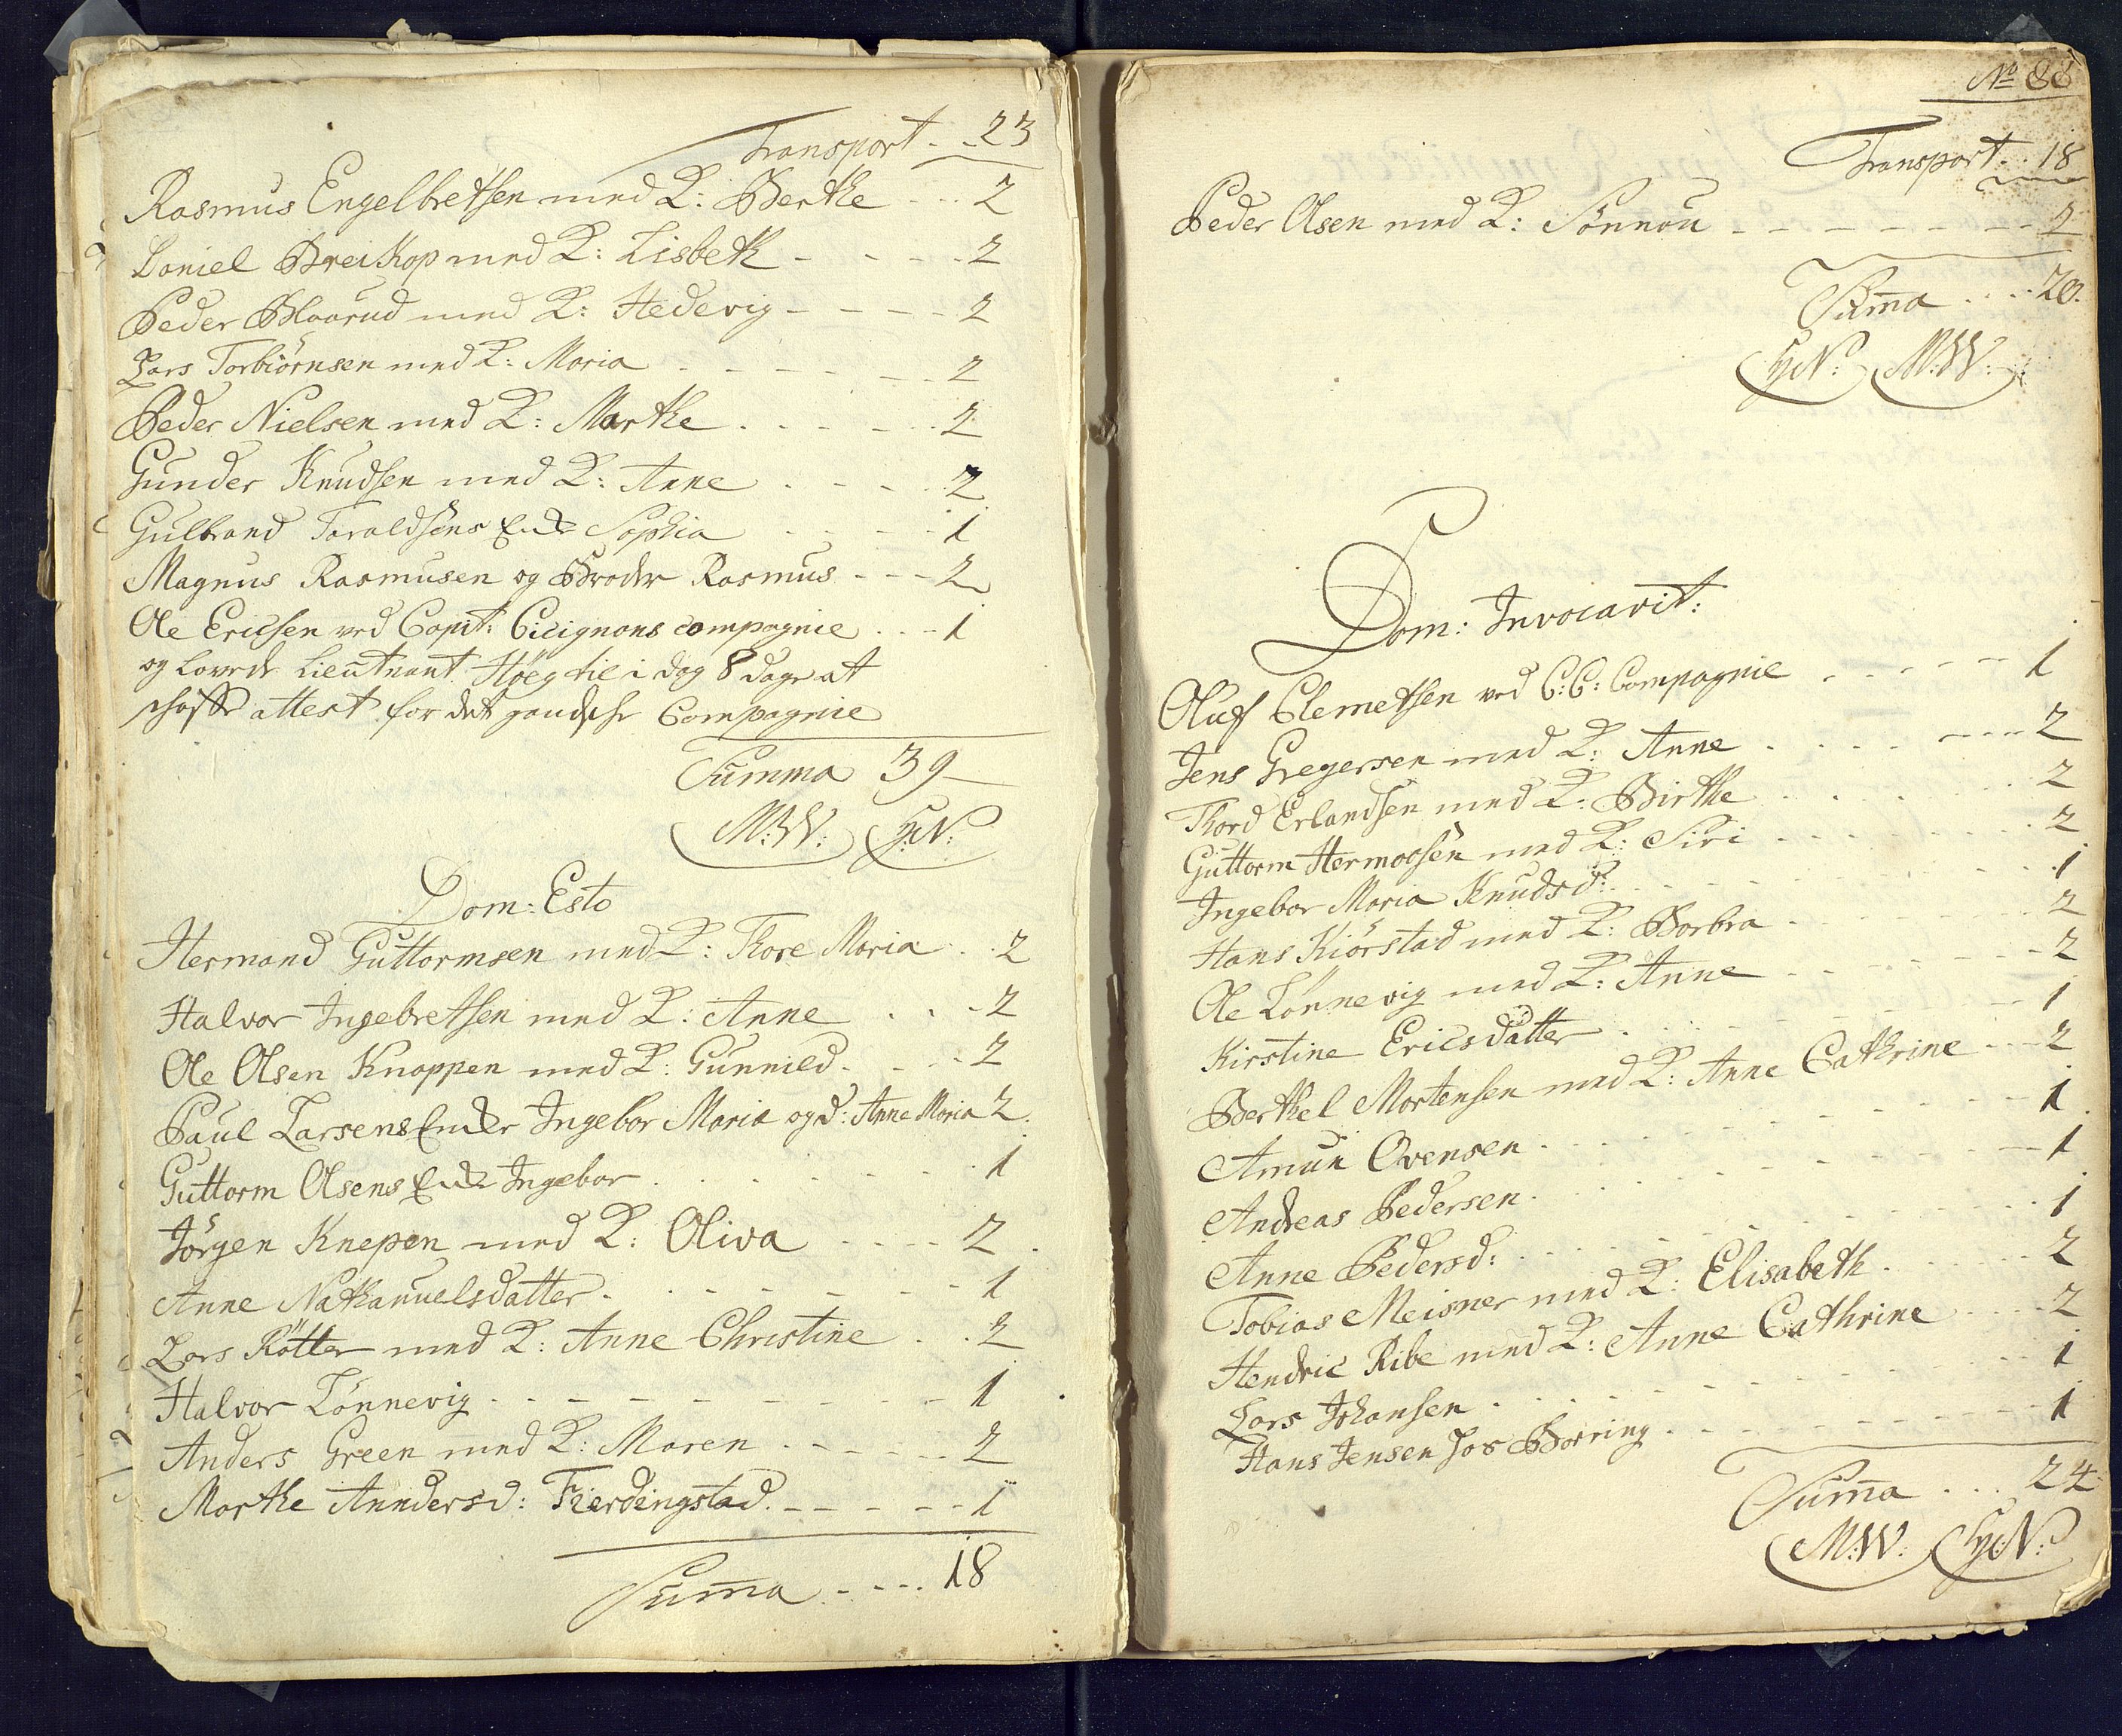 Transport - - 23
Rasmus Engelbretsen med K: Berthe - - - 2
Daniel Breikop med K: Lisbeth - - - - 2
Peder Blaarud med K: Hedevig - - - - 2
Lars Torbiörnsen med K: Maria - - - - - 2
Peder Nielsen med K: Marthe - - - - - 2
Gunder Knudsen med K: Anne - - - - 2
Gulbrand Taraldsens Enke Sophia - - - - 1
Magnus Rasmusen og Broder Rasmus - - - 2
Ole Ericsen ved Capit: Cicignons compagnie - - - 1
og Lovede Lieutnant Höeg til i dag 8 dage at
skaffe attest for det gandske Compagnie
Summa 39
M:W: H:N:
Dom: Esto
Hermand Guttormsen med K: Thore Maria - - 2
Halvor Ingebretsen med K: Anne - - - 2
Ole Olsen Knappen med K: Gunnild - - - 2
Paul Larsens Enke Ingebor Maria og d: Anne Maria 2
Guttorm Olsens Enke Ingebor - - - - - 1
Jörgen Knepen med K: Oliva - - - - 2
Anne Nathanuelsdatter - - - - - - 1
Lars Rötter med K: Anne Christine - - 2
Halvor Lönnevig - - - - - - - - 1
Anders Green med K: Maren - - - - - 2
Marthe Anndersd: Fierdingstad - - - - - 1
Suma - - - - 18
No 88
Transport - - 18
Peder Olsen med K: Sönnou - - - - - - - - 2
Suma - - - - 20
H:N: M:W:
Dom: Invocavit:
Oluf Clemetsen ved C:C: Compagnie - - - - - 1
Jens Gregersen med K: Anne - - - - - - - 2
Thord Erlandsen med K: Birthe - - - - - - 2
Guttorm Hermoosen med K: Siri - - - - - - 2
Ingebor Maria Knudsd: - - - - - - - - 1
Hans Kiörstad med K: Barbra - - - - - - 2
Ole Lönnevig med K: Anne - - - - - - - 2
Kirstine Ericsdatter - - - - - - - - 1
Berthel Mortensen med K: Anne Cathrine - - - 2
Amun Ovensen - - - - - - - - - 1
Andreas Pedersen - - - - - - - - 1
Anne Pedersd: - - - - - - - - - 1
Tobias Meisner med K: Elisabeth - - - - - 2
Hendric Ribe med K: Anne Cathrine - - - - 2
Lars Johansen - - - - - - - - - 1
Hans Jensen hos Borring - - - - - - - 1
Suma - - - 24
M:W: H:N: